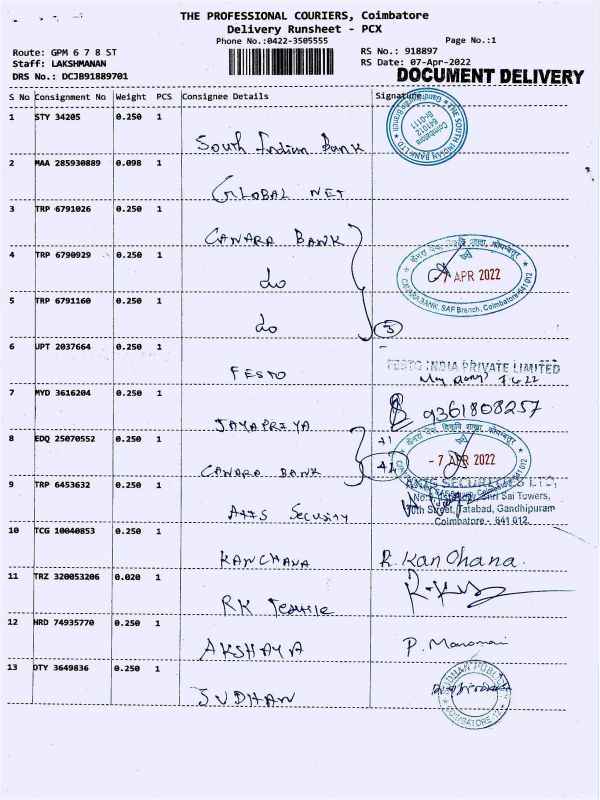 THE PROFESSIONAL COURIERS, Coimbatore
Delivery Runsheet - PCX
Phone No.:0422-3505555
Page No.:1
Route: GPM 6 7 8 ST
RS No.: 918897
Staff: LAKSHMANAN
RS Date: 07-Apr-2022
DRS No.: DCJB91889701
DOCUMENT DELIVERY
S No Consignment No Weight PCS Consignee Details Signature
1 STY 34205 0.250 1
South Indian Bank
THE SOUTH INDIAN BANK LTD Gandhipuram Branch Coimbatore 641012
2 MAA 285930889 0.098 1
GLOBAL NET
3 TRP 6791026 0.250 1
CANARA BANK
4 TRP 6790929 0.250 1
do
7 APR 2022
CANARA BANK, SAF Branch, Coimbatore 641 012
5 TRP 6791160 0.250 1
do
3
6 UPT 2037664 0.250 1
FESTO
FESTO INDIA PRIVATE LIMITED
7 MYD 3616204 0.250 1
JAYAPRIYA
9361808257
8 EDQ 25070552 0.250 1
CANARA BANK
+1
- 7 APR 2022
9 TRP 6453632 0.250 1
AXIS Security
AXIS SECURITIES LTD,
Sai Towers,
Street, Tatabad, Gandhipuram
Coimbatore - 641 012.
10 TCG 10040853 0.250 1
KANCHANA
R. Kanchana.
11 TRZ 320053206 0.020 1
RK Textile
12 HRD 74935770 0.250 1
AKSHAYA
P. Manomani
13 DTY 3649836 0.250 1
SUDHAN
COIMBATORE-12